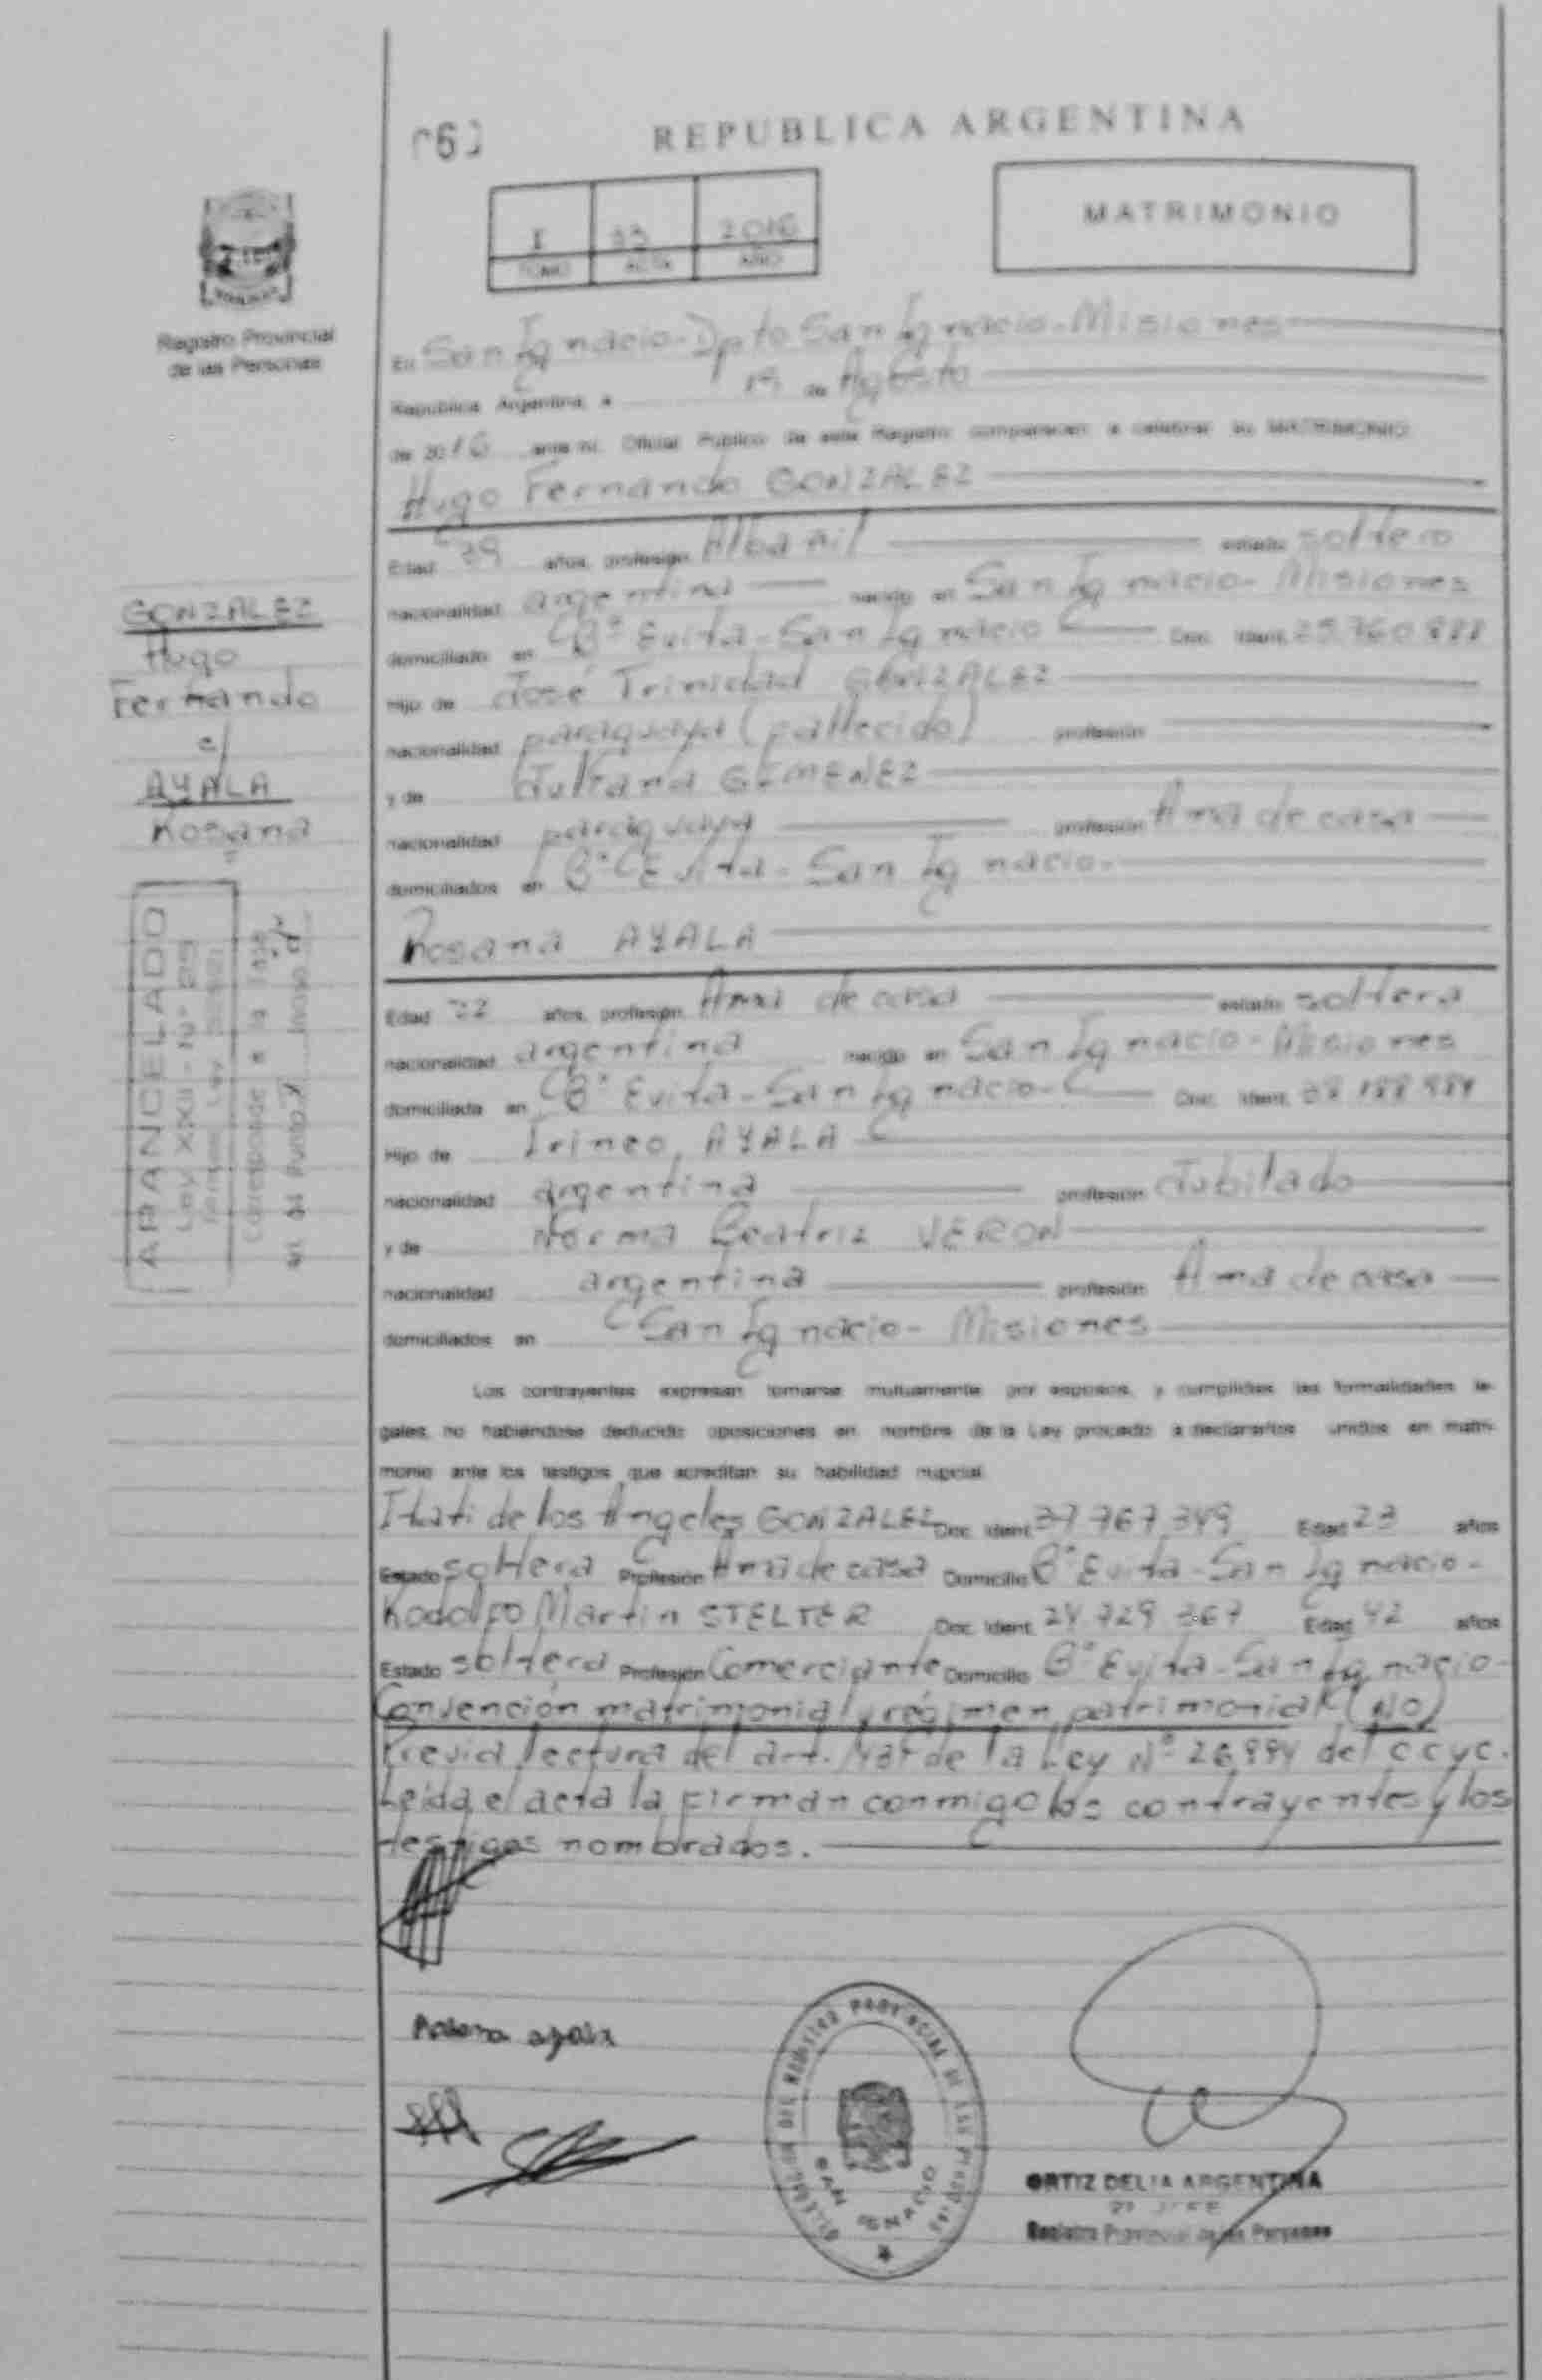 REPUBLICA ARGENTINA
I 2016
TOMO ACTA AÑO
MATRIMONIO
Registro Provincial
de las Personas
En San Ignacio - Dpto San Ignacio - Misiones
Republica Argentina, a de Agosto
de 2016 ante mi, Oficial Publico de este Registro comparecen a celebrar su MATRIMONIO
Hugo Fernando GONZALEZ
Edad 39 años, profesión Albañil estado soltero
nacionalidad argentina nacido en San Ignacio - Misiones
domiciliado en B° Evita - San Ignacio Doc. Ident.
Hijo de José Trinidad GONZALEZ
nacionalidad paraguaya (fallecido) profesión
y de Juliana GIMENEZ
nacionalidad paraguaya profesión Ama de casa
domiciliados en B° Evita - San Ignacio -
Rosana AYALA
Edad 22 años, profesión Ama de casa estado soltera
nacionalidad argentina nacida en San Ignacio - Misiones
domiciliada en B° Evita - San Ignacio - Doc. Ident.
Hijo de Irineo AYALA
nacionalidad argentina profesión Jubilado
y de Norma Beatriz VERON
nacionalidad argentina profesión Ama de casa
domiciliados en San Ignacio - Misiones
Los contrayentes expresan tomarse mutuamente por esposos, y cumplidas las formalidades le-
gales, no habiéndose deducido oposiciones en nombre de la Ley procedo a declararlos unidos en matri-
monio ante los testigos que acreditan su habilidad nupcial
Itati de los Angeles GONZALEZ Doc. Ident. 37 767 349 Edad 23 años
Estado soltera Profesión Ama de casa Domicilio B° Evita - San Ignacio -
Rodolfo Martin STELTER Doc. Ident. 24 729 367 Edad 42 años
Estado soltero Profesión Comerciante Domicilio B° Evita - San Ignacio -
Convención matrimonial y régimen patrimonial (NO)
Previa lectura del art. de la Ley N° 26.994 del CCyC.
Leida el acta la firman conmigo los contrayentes y los
testigos nombrados.
GONZALEZ
Hugo
Fernando
c/
AYALA
Rosana
ARANCELADO
Ley XXII - N° 25
Corresponde a la
Art. 04 Punto Inciso
Rosana ayala
DELEGACION DEL REGISTRO PROVINCIAL DE LAS PERSONAS
SAN IGNACIO
ORTIZ DELIA ARGENTINA
Registro Provincial de las Personas